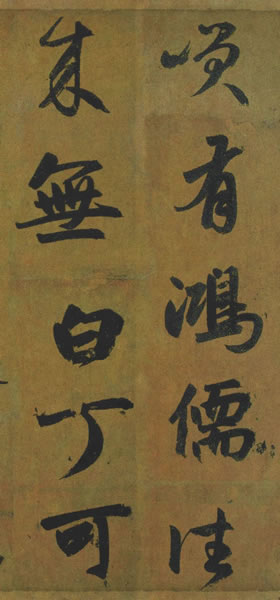 咲有鴻儒往
来無白丁可